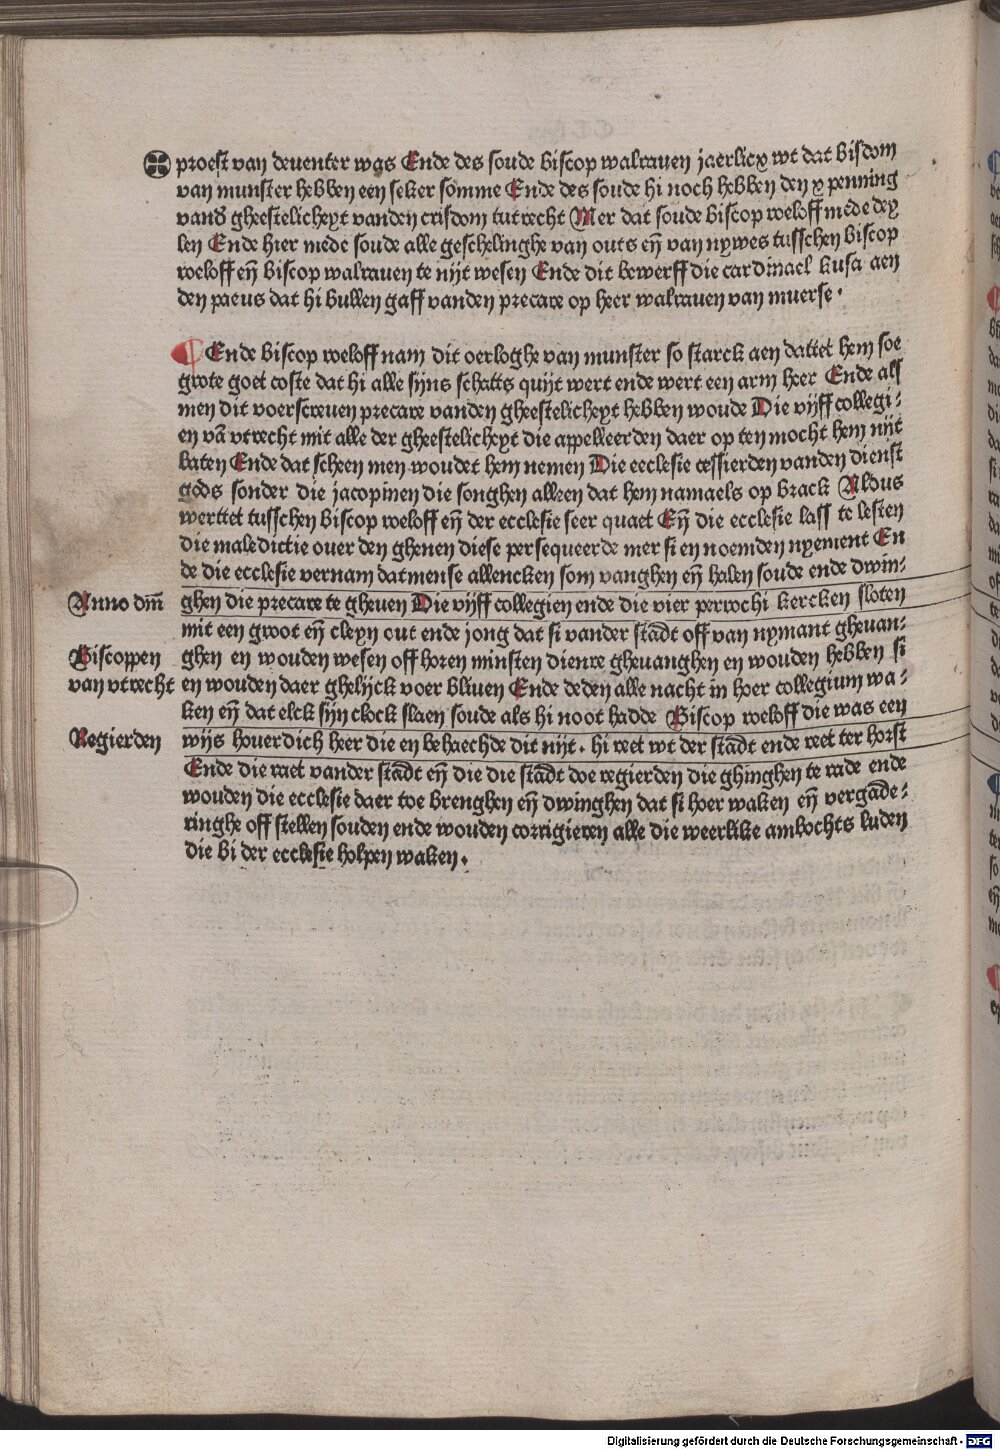 proest van deventer was Ende des soude biscop walraven jaerlicx wt dat bisdom
van munster hebben een seker somme Ende des soude hi noch hebben den x penning
vand gheestelicheyt vanden crisdom tutrecht Mer dat soude biscop roeloff mede dey
len Ende hier mede soude alle geschelinghe van outs en̄ van nywes tusschen biscop
roeloff en̄ biscop walraven te nijt wesen Ende dit bewerff die cardinael kusa aen
den paeus dat hi bullen gaff vanden precare op heer walraven van muerse ·
¶ Ende biscop roeloff nam dit oerloghe van munster so starck aen dattet hem soe
grote goet coste dat hi alle sijns schatts quijt wert ende wert een arm heer Ende als
men dit voerscreven precare vanden gheestelicheyt hebben woude Die vijff collegi⸗
en vā vtrecht mit alle der gheestelicheyt die appelleerden daer op ten mocht hem nijt
baten Ende dat scheen men woudet hem nemen Die ecclesie cessierden vanden dienst
gods sonder die jacopinen die songhen alleen dat hem namaels op brack Aldus
werttet tusschen biscop roeloff en̄ der ecclesie seer quaet En̄ die ecclesie lass te lesten
die maledictie over den ghenen diese persequeerde mer si en noemden nyement En
de die ecclesie vernam datmense allencken som vanghen en̄ halen soude ende dwin⸗
Anno dm̄ ghen die precare te gheven Die vijff collegien ende die vier perrochi kercken sloten
mit een groot en̄ cleyn out ende jong dat si vander stadt off van nymant ghevan⸗
Biscoppen ghen en wouden wesen off horen minsten dienre ghevanghen en wouden hebben si
van vtrecht en wouden daer ghelijck voer bliven Ende deden alle nacht in hoer collegium wa⸗
ken en̄ dat elck sijn clock slaen soude als hi noot hadde Biscop roeloff die was een
Regierden wijs hoverdich heer die en behaechde dit nijt · hi reet wt der stadt ende reet ter horst
Ende die raet vander stadt en̄ die die stadt doe regierden die ghinghen te rade ende
wouden die ecclesie daer toe brenghen en̄ dwinghen dat si hoer waken en̄ vergade⸗
ringhe off stellen souden ende wouden corrigieren alle die weerlike ambochts luden
die bi der ecclesie holpen waken ·
Digitalisierung gefördert durch die Deutsche Forschungsgemeinschaft - DFG